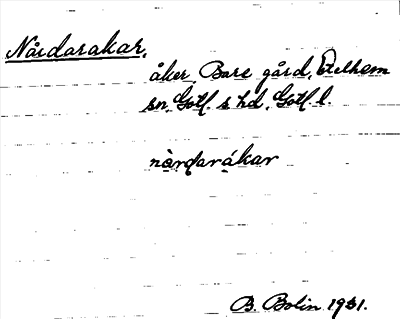 Nårdarakar,
åker, Bare gård, Etelhem
sn, Gotl. s hd, Gotl. l.
nàrdarákar
B. Bolin 1931.